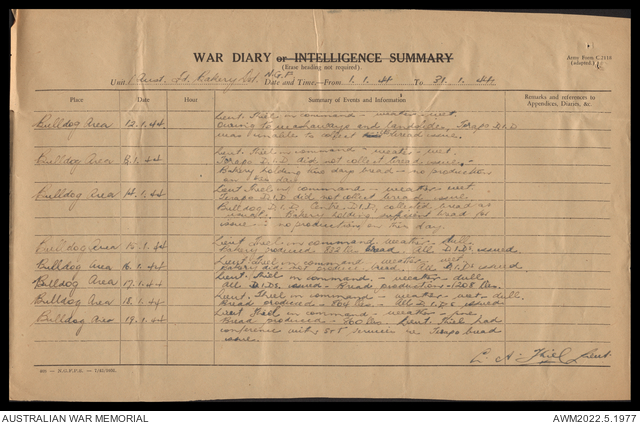 WAR DIARY or INTELLIGENCE SUMMARY
(Erase heading not required).
Army Form C.2118
(adapted.)
Unit Aust. Fd. Bakery N.G.F. Date and Time—From 1.1.44 To 31.1.44
Place Date Hour Summary of Events and Information Remarks and references to Appendices, Diaries, &c.
Bulldog Area 12.1.44 Lieut. Thiel in command - weather - wet.
Owing to and landslides, Terapo D.I.D
was unable to collect bread issue.
Bulldog Area Lieut. Thiel in command - weather - wet.
Terapo D.I.D. did not collect bread issue. -
Bakery holding one day bread - no production
on day
Bulldog Area 14.1.44 Lieut. Thiel in command - weather wet.
Terapo D.I.D. did not collect bread issue.
Bulldog D.I.D. D.I.D. collected bread as
usual. Bakery holding sufficient bread for
issue - no production on this day.
Bulldog Area 15.1.44 Lieut. Thiel in command weather - dull
Bakery produced lbs bread. All D.I.Ds issued.
Bulldog Area 16.1.44 Lieut. Thiel in command - weather - wet.
Bakery did not produce bread. All D.I.Ds issued
Bulldog Area 17.1.44 Lieut. Thiel in command - weather - dull
All D.I.Ds. issued - Bread production - 1208 lbs.
Bulldog Area 18.1.44 Lieut. Thiel in command - weather - wet - dull.
Bread produced - lbs. - All D.I.Ds issued
Bulldog Area 19.1.44 Lieut Thiel in command - weather - fine.
Bread produced - 900 lbs. Lieut. Thiel had
conference with S&T services re Terapo bread
issue.
C. A. Thiel Lieut.
N.G.F.P.U.
AUSTRALIAN WAR MEMORIAL
AWM2022.5.1977